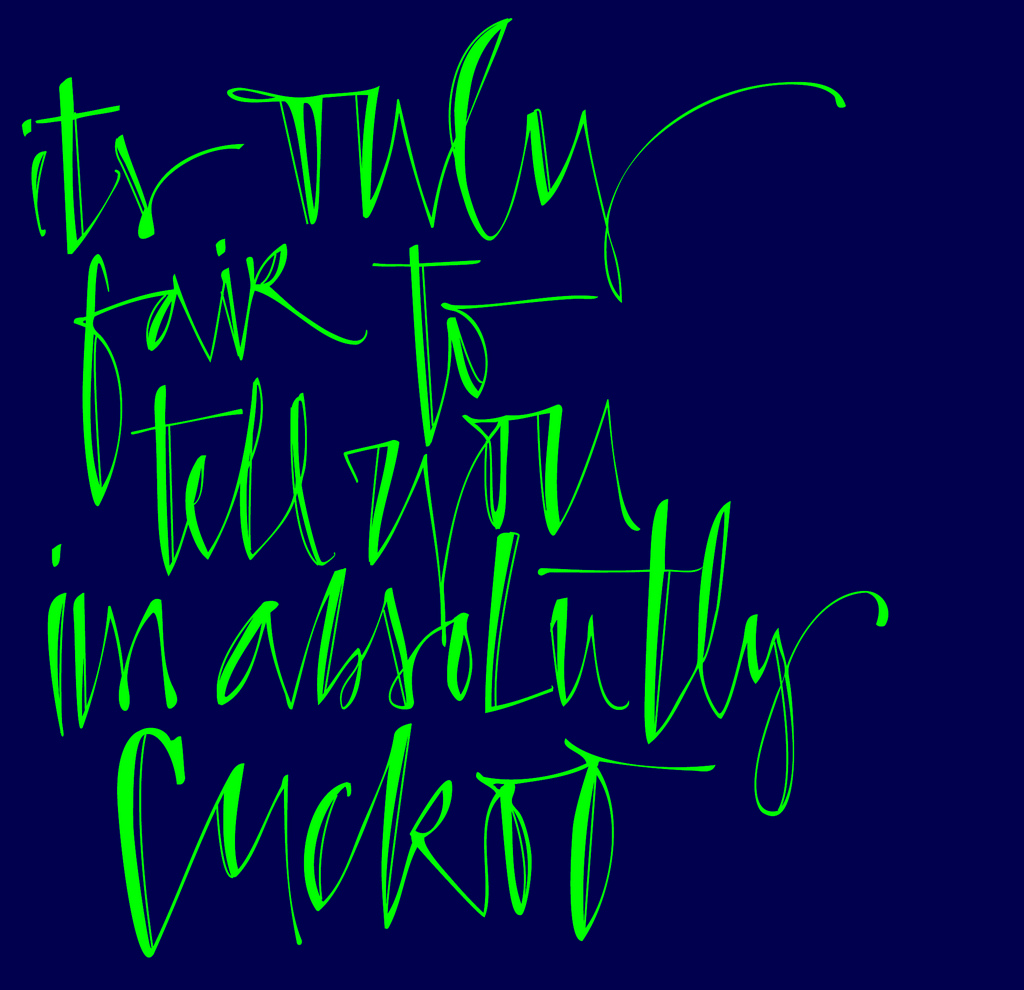 its only
fair to
tell you
in absolutly
Cuckoo